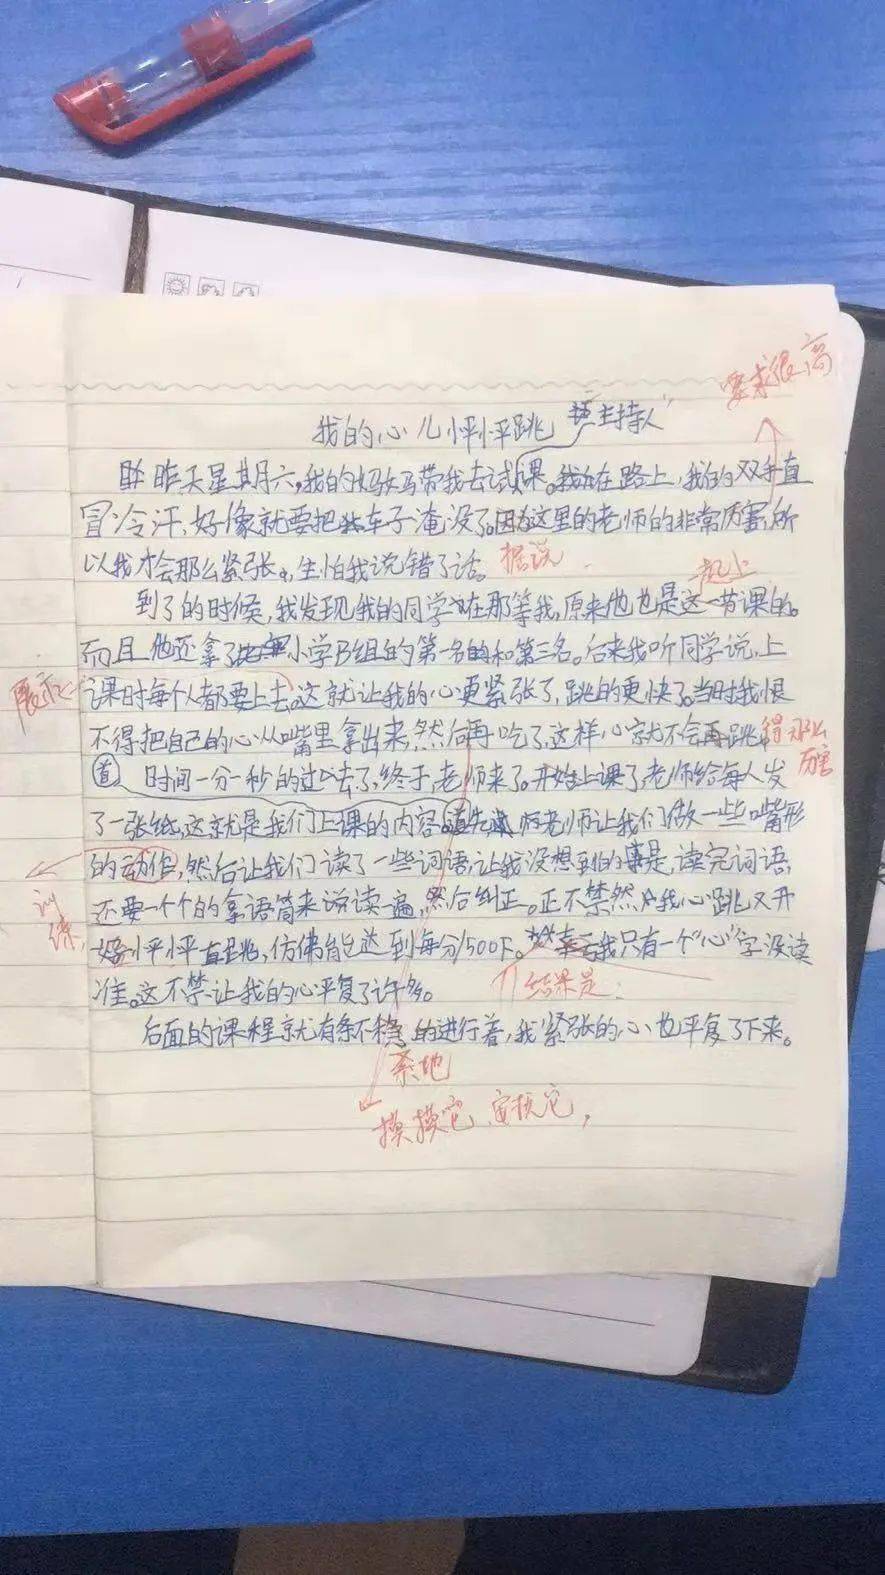 要求很高
我的心儿怦怦跳 "主持人"
昨天星期六,我的妈妈带我去试课。我在路上,我的双手直
冒冷汗,好像就要把车子淹没了。因为这里的老师的非常厉害,所
以我才会那么紧张,生怕我说错了话。 据说
一起上
到了的时候,我发现我的同学在那等我,原来他也是这一节课的。
而且他还拿了小学B组的第一名的和第三名。后来我听同学说,上
展示
课时每个人都要上去。这就让我的心更紧张了,跳的更快了。当时我恨
不得把自己的心从嘴里拿出来,然后再吃了,这样心就不会再跳 得那么
厉害
直 时间一分一秒的过去了,终于,老师来了。开始上课了,老师给每人发
了一张纸,这就是我们上课的内容。老师让我们做一些嘴形
的动作,然后让我们读了一些词语,让我没想到的事是,读完词语,
训
练
还要一个个的拿话筒来读一遍,然后纠正。正不禁然我心跳又开
始怦怦直跳,仿佛能达到每分1500下。我只有一个"心"字没读
准。这不禁让我的心平复了许多。 结果是:
后面的课程就有条不稳的进行着,我紧张的心也平复了下来。
紊地
摸摸它、安抚它,